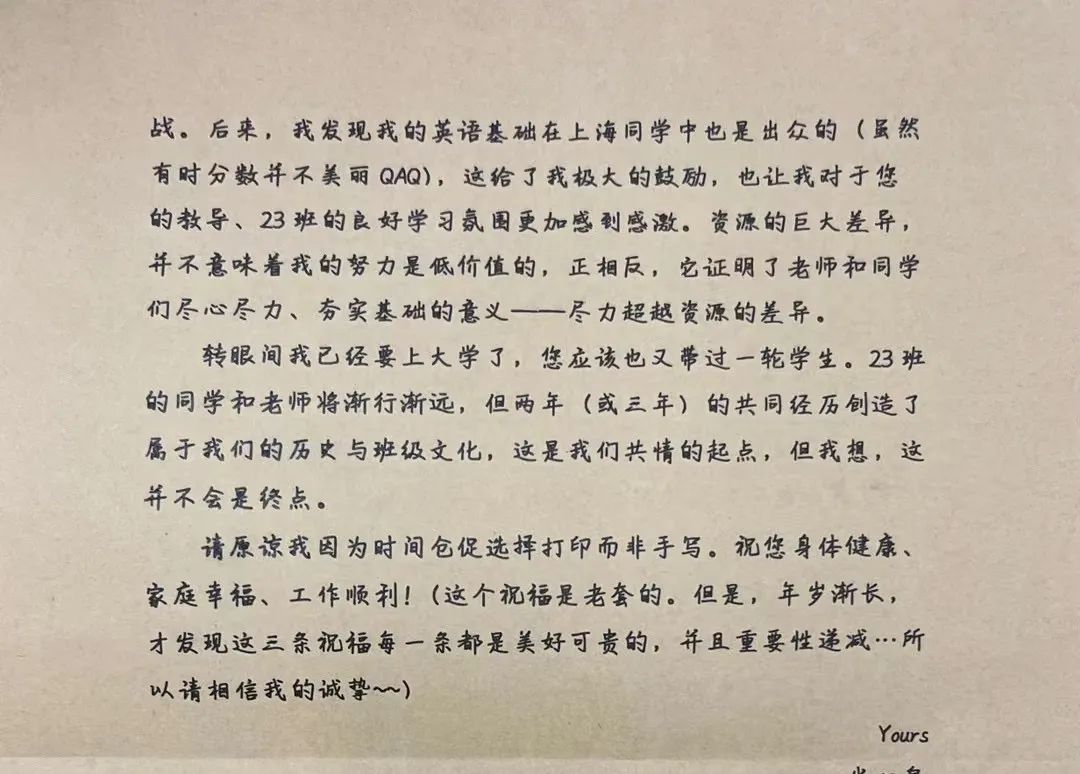 战。后来，我发现我的英语基础在上海同学中也是出众的（虽然
有时分数并不美丽QAQ），这给了我极大的鼓励，也让我对于您
的教导、23班的良好学习氛围更加感到感激。资源的巨大差异，
并不意味着我的努力是低价值的，正相反，它证明了老师和同学
们尽心尽力、夯实基础的意义——尽力超越资源的差异。
转眼间我已经要上大学了，您应该也又带过一轮学生。23班
的同学和老师将渐行渐远，但两年（或三年）的共同经历创造了
属于我们的历史与班级文化，这是我们共情的起点，但我想，这
并不会是终点。
请原谅我因为时间仓促选择打印而非手写。祝您身体健康、
家庭幸福、工作顺利！（这个祝福是老套的。但是，年岁渐长，
才发现这三条祝福每一条都是美好可贵的，并且重要性递减…所
以请相信我的诚挚~~）
Yours